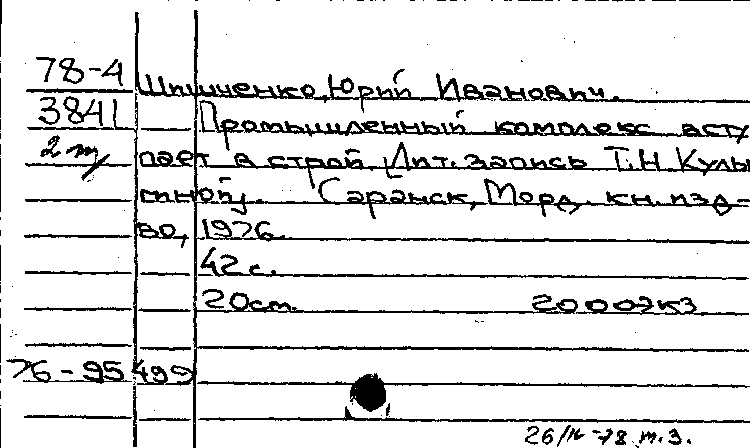 78-4
Шпинченко, Юрий Иванович.
3841
Промышленный комплекс всту
2 т
пает в строй. [Лит. запись Т.Н. Кулы
гиной]. Саранск, Морд. кн. изд-
во, 1976.
42 с.
20см. 2000экз
76-95499
26/IV-78 т.з.